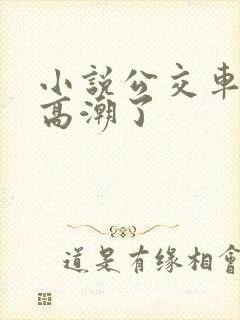 小說公交車
高潮了
道是有缘相會